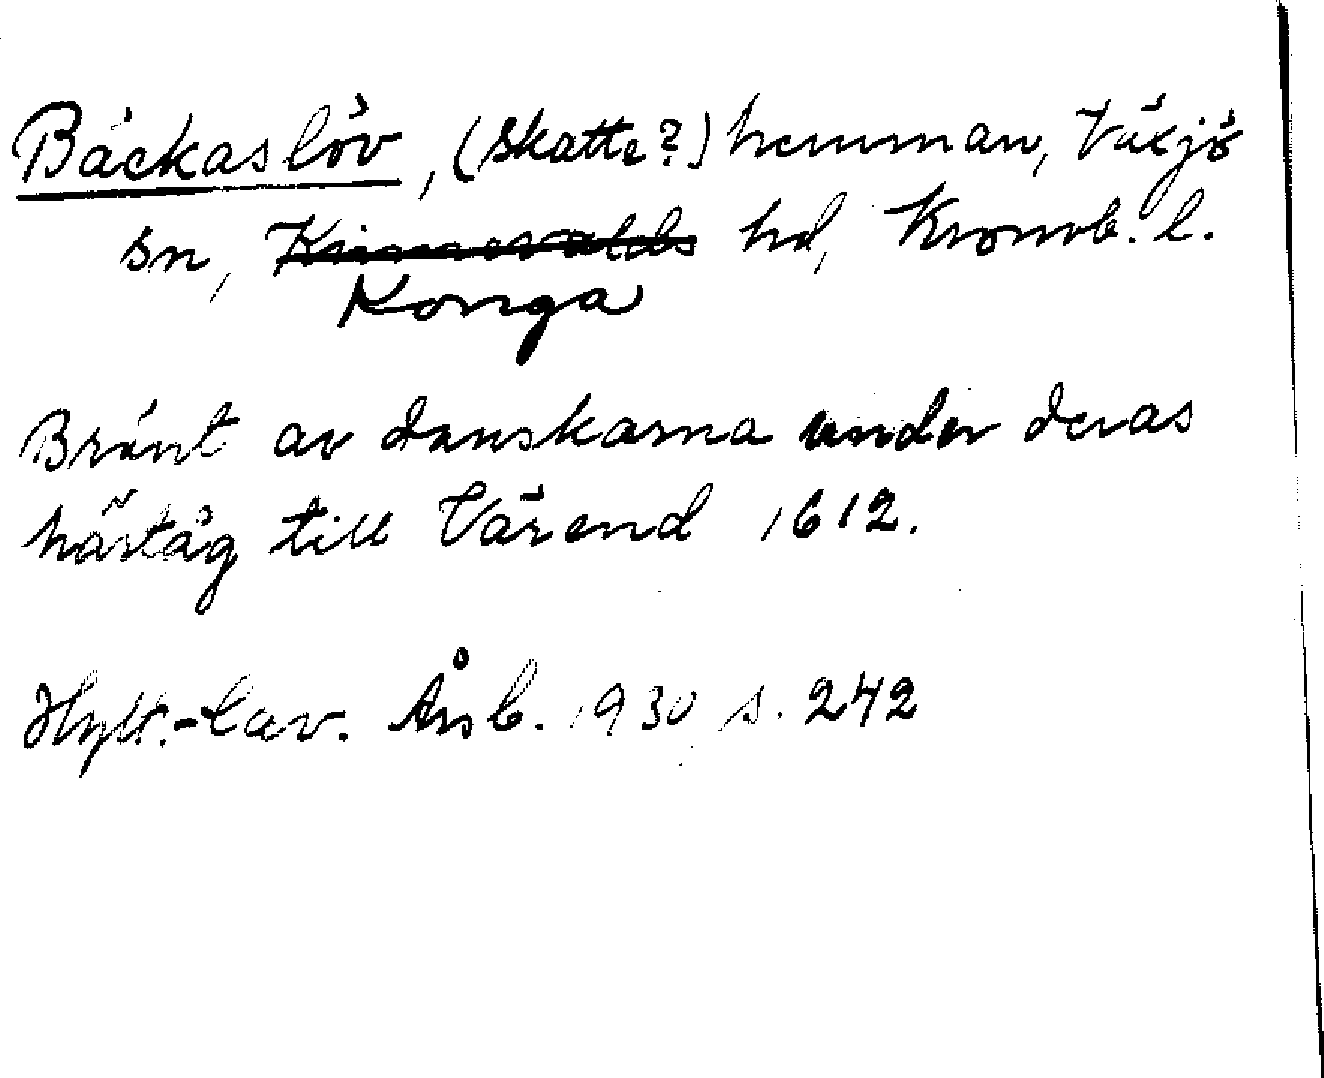 Bäckaslöv, (skatte?) hemman, Växjö
sn, Kinnevalds hd, Kronob. l.
Konga
Bränt av danskarna under deras
härtåg till Värend 1612.
Hylt.-Cav. Årsb. 1930 s. 242